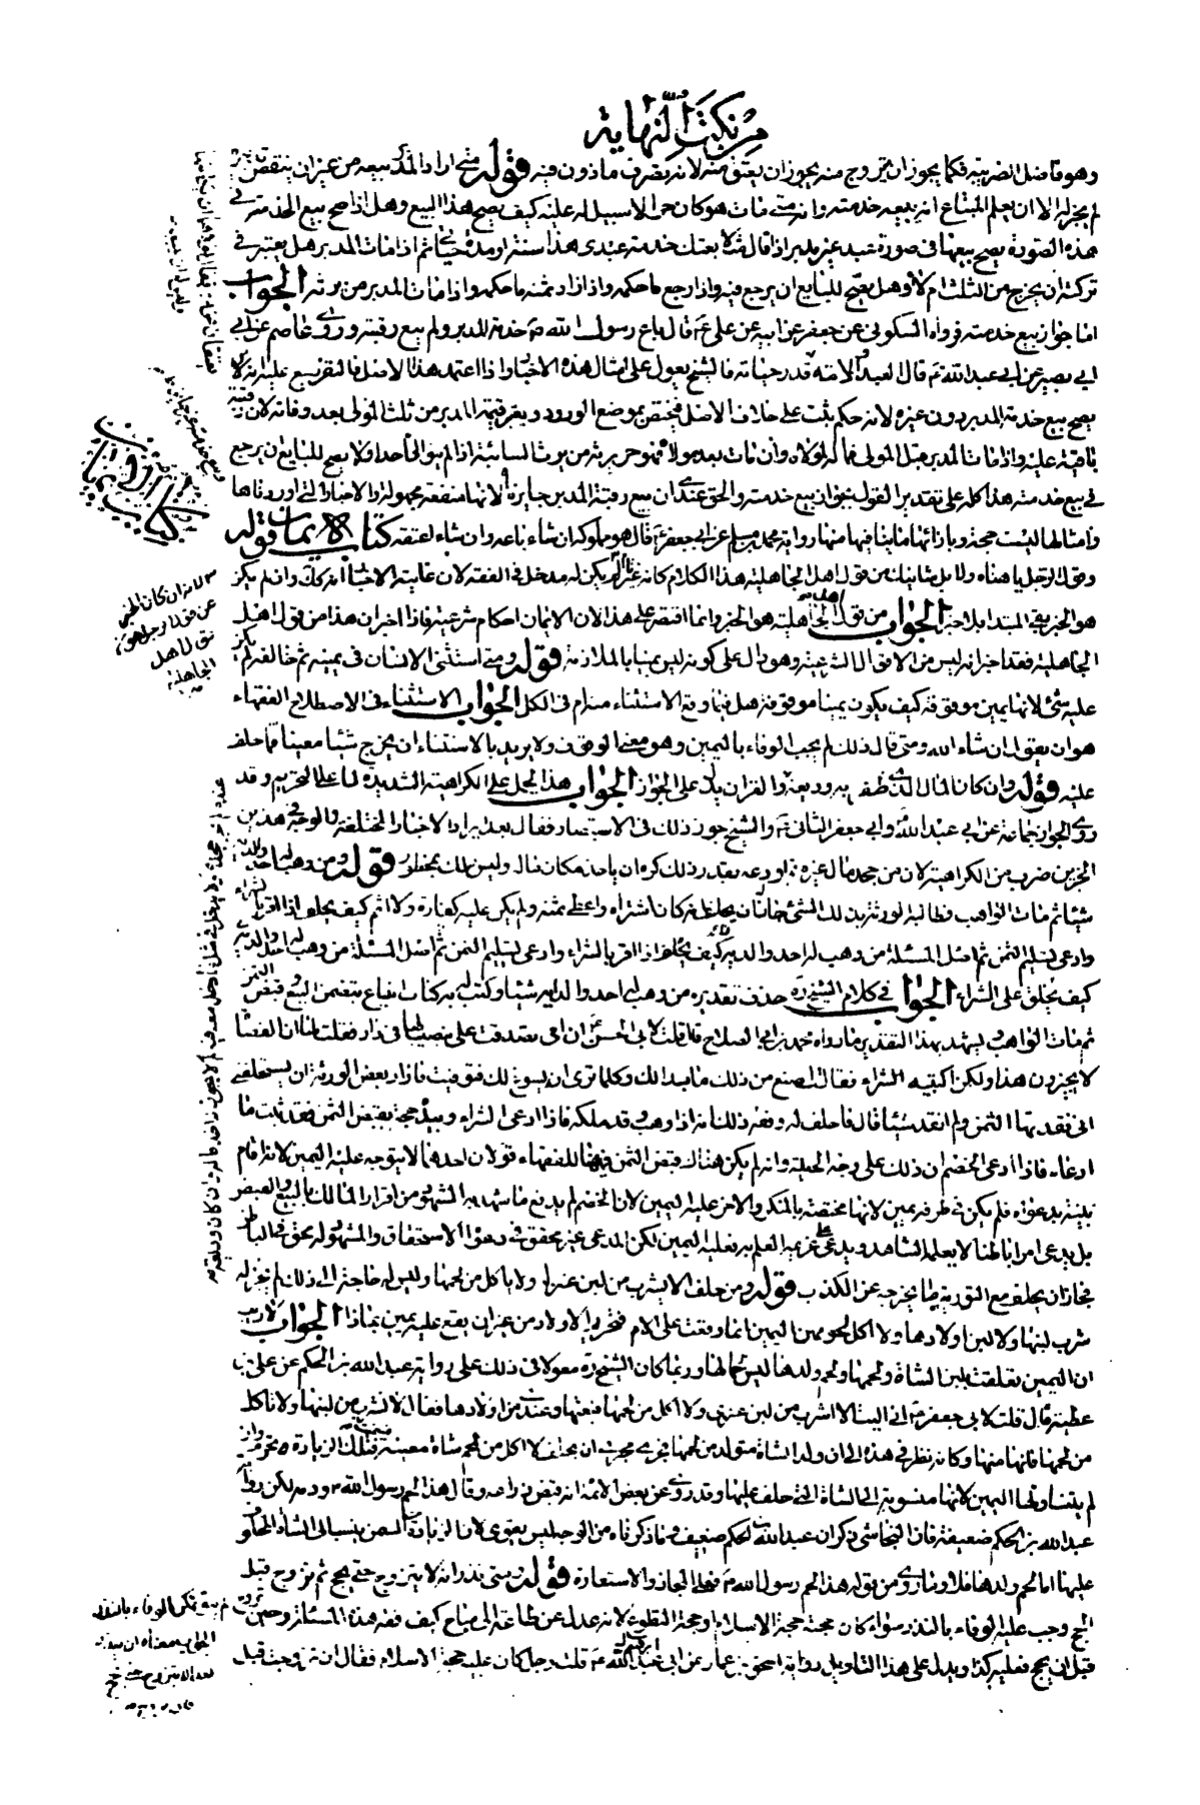 من نكت النهاية
وهو فاضل الضريبة فكما يجوز ان يتزوج منه يجوز ان يعتق منه لانه تصرف ماذون فيه قوله متى اراد المدبر بيعه من غير ان ينقض تدبيره
لم يجز له الا ان يعلم المبتاع انه يبيعه خدمته وانه متى مات هو كان حرا لا سبيل له عليه كيف يصح هذا البيع وهل اذا صح بيع الخدمة في
هذه الصورة يصح بيعها في صورة عبد غير مدبر اذا قال مثلا بعتك خدمة عبدي هذا سنة او مدة حياتي ثم اذا مات المدبر هل يعتبر في
تركته ان يخرج من الثلث ام لا وهل يصح للبايع ان يرجع فيه واذا رجع ما حكمه واذا زاد ثمنه ما حكمه واذا مات المدبر من يرثه الجواب
اما جواز بيع خدمته فرواه السكوني عن جعفر عن ابيه عن علي ع قال باع رسول الله ص خدمة المدبر ولم يبع رقبته وروى عاصم عن ابي
ابي بصير عن ابي عبد الله ع قال العبد والامة قدر حياته فالشيخ يعول على امثال هذه الاخبار واذا اعتمد هذا الاصل فالتفريع عليه انه لا
يصح بيع خدمة المدبر دون غيره لانه حكم يثبت على خلاف الاصل فيختص بموضع الورود ويعتبر قيمة المدبر من ثلث المولى بعد وفاته لان رقبته
باقية عليه واذا مات المدبر قبل المولى فماله لمولاه وان مات بعد مولاه فهو حر يرثه من يرث السائبة اذا لم يتوالى احدا ولا يصح للبايع ان يرجع
في بيع خدمته هذا كله على تقدير القول بجواز بيع خدمته والحق عندي ان بيع رقبة المدبر جايزة لانها منفعة مجهولة والاخبار التي اوردناها
وامثالها ليست حجة وبازائها ما ينافيها منها رواية محمد بن مسلم عن ابي جعفر ع قال هو مملوكه ان شاء باعه وان شاء اعتقه كتاب الايمان قوله
وقول الرجل يا هناه ولا بل شانيك من قول اهل الجاهلية هذا الكلام كانه غير تام لم يكن له مدخل في الفقه لان غاية الاخبار انه كذلك وان لم يكن
هو الخبر بقي المبتدا بلا خبر الجواب من قول اهل الجاهلية هو الخبر وانما اقتصر على هذا لان الايمان احكام شرعية فاذا اخبر ان هذا من قول اهل
الجاهلية فقد اخبر انه ليس من الاقوال الشرعية وهو دال على كونه ليس يمينا بالملازمة قوله ومتى استثنى الانسان في يمينه ثم خالف لم يكن
عليه شئ لانها يمين موقوفة كيف يكون يمينا موقوفة هل فيما وقع الاستثناء منه ام في الكل الجواب الاستثناء في الاصطلاح الفقهاء
هو ان يقول ان شاء الله ومتى قال ذلك لم يجب الوفاء باليمين وهو معنى الوقوف ولا يريد بالاستثناء ان يخرج شيئا معينا مما حلف
عليه قوله وان كان المال الذي ظفر به وديعة والقران يدل على الجواز الجواب هذا يحمل على الكراهية الشديدة لا على التحريم وقد
روى الجواز جماعة عن ابي عبد الله وابي جعفر الثاني ع والشيخ جوز ذلك في الاستبصار فقال بعد ايراد الاخبار المختلفة والوجه في هذين
الخبرين ضرب من الكراهية لان من جحد مال غيره ثم اودعه بقدر ذلك كره ان ياخذ مكان ماله وليس ذلك بمحظور قوله ومن وهب له احد والديه
شيئا ثم مات الواهب فطالبه الورثة بذلك الشئ جاز ان يحلف انه كان اشتراه واعطى ثمنه ولم يكن عليه كفارة ولا اثم كيف يحلف اذا اقر بالشراء
وادعى تسليم الثمن ثم اصل المسئلة من وهب له احد والديه كيف يحلف اذا اقر بالشراء وادعى تسليم الثمن ثم اصل المسئلة من وهب له احد والديه
كيف يحلق على الشراء الجواب في كلام الشيخ ره حذف تقديره من وهب له احد والديه شيئا وكتب له به كتاب ابتياع يتضمن البيع وقبض الثمن
ثم مات الواهب يشهد بهذا التقدير ما رواه محمد بن ابي الصلاح قال قلت لابي الحسن ع ان امي تصدقت علي بنصيب لها في دار فقلت لها ان القضاة
لا يجيزون هذا ولكن اكتبيه الشراء فقالت اصنع من ذلك ما بدا لك وكلما ترى ان يسوغ لك فتوثقت فاراد بعض الورثة ان يستحلفني
اني نقدتها الثمن ولم انقدها شيئا قال فاحلف له وفقه ذلك انه اذا وهب وقد ملكه فاذا ادعى الشراء وبيده حجة بقبض الثمن فقد ثبت ما
ادعاه فاذا ادعى الخصم ان ذلك على وجه الحيلة وانه لم يكن هناك قبض الثمن فههنا للفقهاء قولان احدهما لا يتوجه عليه اليمين لانه اقام
بينة بدعواه فلم يكن في طرفه يمين لانها مختصة بالمنكر والاخر عليه اليمين لان الخصم لم يدفع ما شهد به الشهود من اقرار المالك بالبيع والقبض
بل يدعى امرا باطنا لا يعلمه الشاهد ويدعي على غريمه العلم به فعليه اليمين لكن المدعي غير محق في دعواه الاستحقاق والمشهود له محق في الباطن
فجاز ان يحلف مع التورية بما يخرجه عن الكذب قوله ومن حلف الا يشرب من لبن عنز له ولا ياكل من لحمها وليس له حاجة الى ذلك لم يجز له
شرب لبنها ولا لبن اولادها ولا اكل لحومهن اليمين انما وقعت على الام فتحريم الاولاد من غير ان يقع عليه يمين بماذا الجواب لا ريب
ان اليمين تعلقت بلبن الشاة ولحمها ولحم ولدها ليس لحما لها وربما كان الشيخ ره معولا في ذلك على رواية عبد الله بن الحكم عن علي بن
عطية قال قلت لابي جعفر ع اني اليت الا اشرب من لبن عنزتي ولا اكل من لحمها فبعتها وعندي من اولادها فقال لا تشرب من لبنها ولا تاكل
من لحمها فانها منها وكانه نظر في هذه الى ان ولد الشاة متولد من لحمها فجرى مجرى ان يحلف لا اكل من لحم شاة معينة فسمنت فتلك الزيادة محرمة وان
لم يتناولها اليمين لانها منسوبة الى الشاة التي حلف عليها وقد روى عن بعض الائمة انه قبض ذراعه وقال هذا لحم رسول الله ص ودمه لكن رواية
عبد الله بن الحكم ضعيفة فان النجاشي ذكر ان عبد الله بن الحكم ضعيف وما ذكرناه من الوجه ليس بقوي لان الزيادة في السمن ينسب الى الشاة المحلوف
عليها اما لحم ولدها فلا وما روى من قوله هذا لحم رسول الله ص فعلى المجاز والاستعارة قوله ومتى نذر انه لا يتزوج حتى يحج ثم تزوج قبل
الحج وجب عليه الوفاء بالنذر سواء كان حجته حجة الاسلام او حجة التطوع لانه عدل عن طاعة الى مباح كيف فقه هذه المسئلة وحين تزوج
قبل ان يحج فعليه كذا ويدل على هذا التاويل رواية اسحق بن عمار عن ابي ابراهيم ع قلت رجل كان عليه حجة الاسلام فقال ان تزوجت قبل
كتاب الايمان